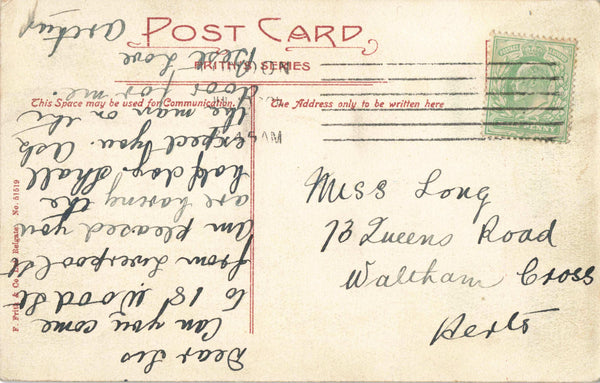 POST CARD
FRITH'S SERIES
This Space may be used for Communication.
The Address only to be written here
Dear Sis
Can you come
to 18 Wood St
from Liverpool St
Am pleased you
are having the
half day. Shall
expect you. Ask
the man on the
door for me.
Best Love
Miss Long
73 Queens Road
Waltham Cross
Herts
F. Frith & Co Reigate. No. 51519
PENNY